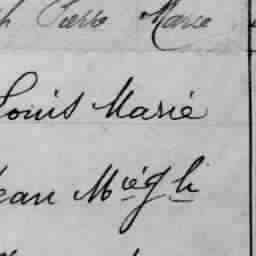 h Pierre Marie
Louis Marié
Jean Miégli